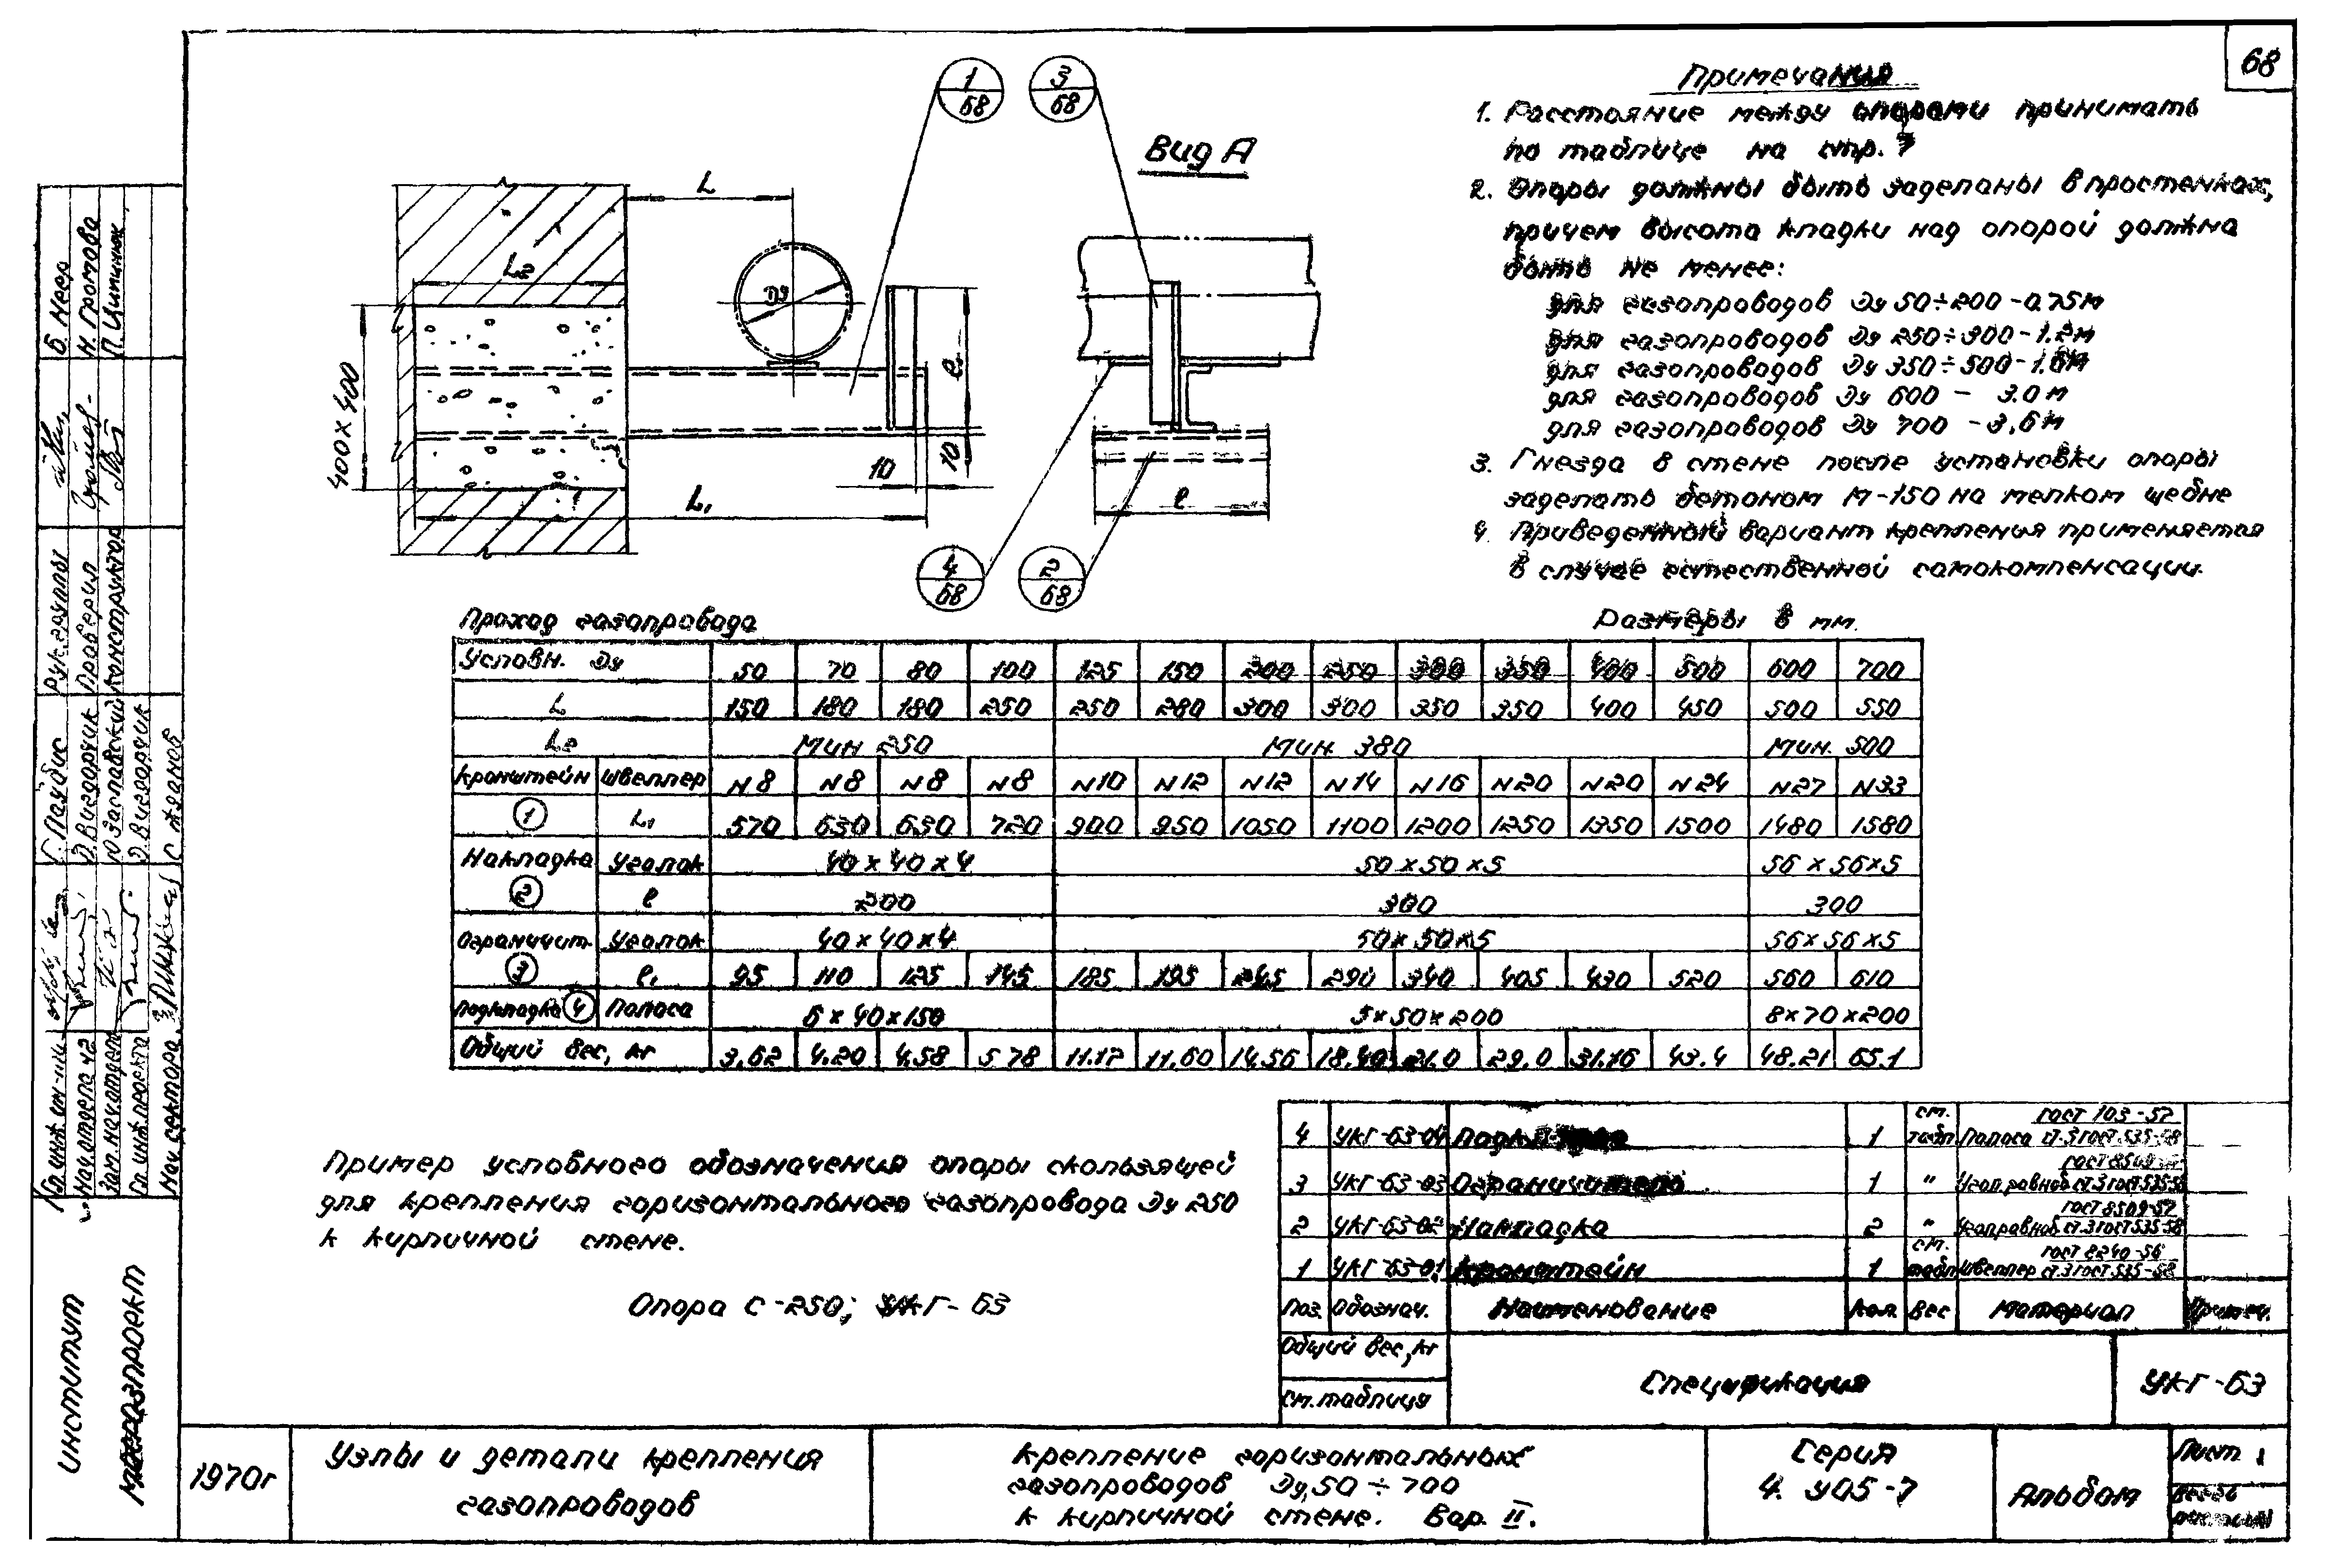 68
Примечания
1. Расстояние между опорами принимать
по таблице на стр. 7
2. Опоры должны быть заделаны в простенках,
причем высота кладки над опорой должна
быть не менее:
для газопроводов Ду 50÷200 - 0.75м
для газопроводов Ду 250÷300 - 1.2м
для газопроводов Ду 350÷500 -
для газопроводов Ду 600 - 3.0м
для газопроводов Ду 700 - 3,6м
3. Гнезда в стене после установки опоры
заделать бетоном М-150 на мелком щебне
4. Приведенный вариант крепления применяется
в случае естественной самокомпенсации.
1/68
3/68
Вид А
L
L2
Ду
400×400
l1
10
10
L1
l
4/68
2/68
Проход газопровода
Размеры в мм.
Условн. Ду 50 70 80 100 125 150 200 250 300 350 400 500 600 700
L 150 180 180 250 250 280 300 300 350 350 400 450 500 550
L2 Мин 250 Мин. 380 Мин. 500
Кронштейн Швеллер N8 N8 N8 N8 N10 N12 N12 N14 N16 N20 N20 N24 N27 N33
1 L1 570 630 630 720 900 950 1050 1100 1200 1250 1350 1500 1480 1580
Накладка Уголок 40×40×4 50×50×5 56×56×5
2 l 200 300 300
Ограничит. Уголок 40×40×4 50×50×5 56×56×5
3 l1 95 110 125 145 185 195 245 290 340 405 430 520 560 610
Подкладка 4 Полоса 5×40×150 5×50×200 8×70×200
Общий вес, кг 3,62 4.20 4.58 5.78 11.17 11.60 14.56 18.40 21.0 29.0 31.16 43.4 48.21 65.1
Пример условного обозначения опоры скользящей
для крепления горизонтального газопровода Ду 250
к кирпичной стене.
Опора С-250; УКГ-63
4 УКГ-63-04 Подкладка 1 см. табл Полоса ГОСТ 103-57 ст.3 ГОСТ 535-58
3 УКГ-63-03 Ограничитель 1 " Угол.равноб ГОСТ 8509-57 ст.3 ГОСТ 535-58
2 УКГ-63-02 Накладка 2 " Угол.равноб ГОСТ 8509-57 ст.3 ГОСТ 535-58
1 УКГ-63-01 Кронштейн 1 см. табл Швеллер ГОСТ 8240-56 ст.3 ГОСТ 535-58
Поз. Обознач. Наименование Кол. Вес Материал Примеч.
Общий вес, кг
см. таблица
Спецификация
УКГ-63
1970г
Узлы и детали крепления
газопроводов
Крепление горизонтальных
газопроводов Ду 50÷700
к кирпичной стене. Вар. II.
Серия
4. У05-7
Альбом
Лист 1
Институт
Мосгазпроект
Гл. инж ин-та Г. Паудис Рук.группы Б. Неер
Нач отдела 42 Д. Вигдорчик Проверил Н. Громова
Зам. нач отдела Ю Заславский Конструктор П. Ципинюк
Гл. инж.проекта Д. Вигдорчик
Нач сектора